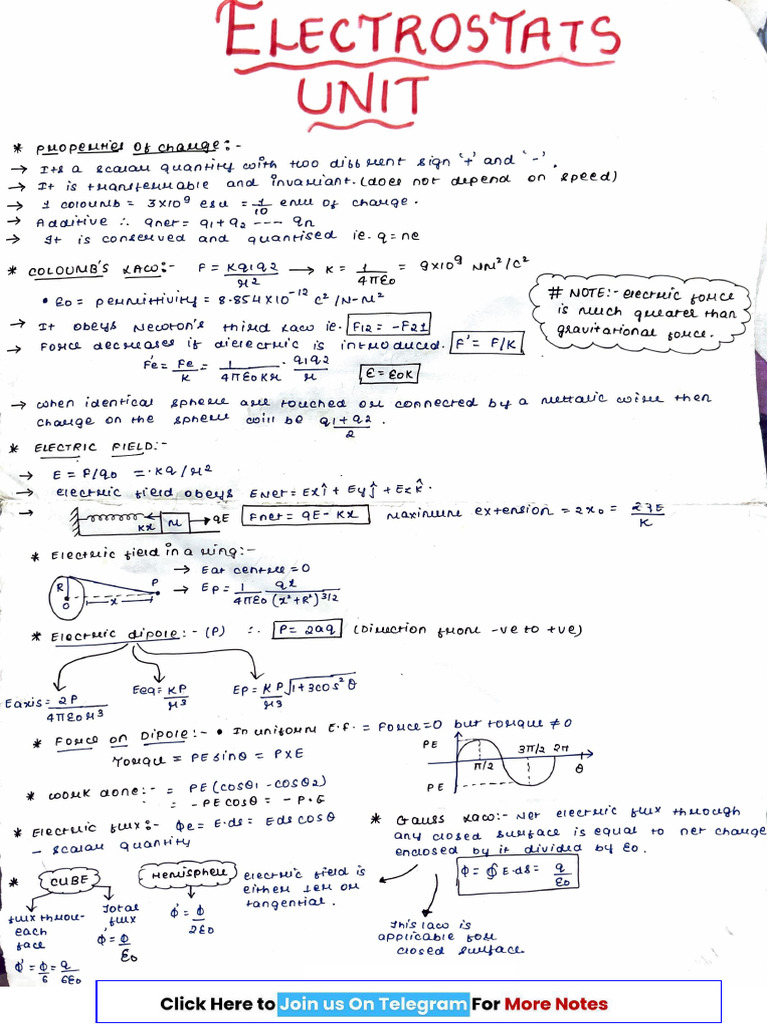 ELECTROSTATS
UNIT
* Properties of Charge:-
→ Its a scalar quantity with two different sign '+' and '-'.
→ It is transferrable and invariant. (does not depend on speed)
→ 1 coloumb = 3×10⁹ esu = 1/10 emu of charge.
→ Additive ∴ qnet = q1+q2 ---- qn
→ It is conserved and quantised ie. q=ne
* COLOUMB'S LAW:- F = Kq1q2/r² → K = 1/4πε0 = 9×10⁹ Nm²/C²
• ε0 = permittivity = 8.854×10⁻¹² C²/N-M²
# NOTE:- electric force is much greater than gravitational force.
→ It obeys Newton's third law ie. F12 = -F21
→ Force decreases if dielectric is introduced. F' = F/K
F'e = Fe/K = 1/4πε0Kr · q1q2/r ε = ε0K
→ When identical sphere are touched or connected by a mettalic wire then
charge on the sphere will be q1+q2/2.
* ELECTRIC FIELD:-
→ E = F/q0 = ·Kq/r²
→ Electric field obeys Enet = Exî + Eyĵ + Ezk̂.
→ Kx M → qE Fnet = qE - Kx Maximum extension = 2x0 = 2qE/K
* Electric field in a ring:-
→ E at centre = 0
R O x P → Ep = 1/4πε0 qx/(x²+R²)^3/2
* Electric dipole:- (P) ∴ P = 2aq (Direction from -ve to +ve)
Eaxis = 2P/4πε0r³ Eeq = KP/r³ Ep = KP/r³ √1+3cos²θ
* Force on Dipole:- • In uniform E.f. = Force=0 but torque ≠ 0
Torque = PE sinθ = P×E
PE PE π/2 3π/2 2π θ
* Work done:- = PE(cosθ1 - cosθ2)
= -PE cosθ = -P·E
* Electric flux:- φe = E·ds = Eds cosθ
- scalar quantity
* Gauss Law:- Net electric flux through
any closed surface is equal to net charge
enclosed by it divided by ε0.
φ = ∮E·ds = q/ε0
electric field is
either ⊥er or
tangential.
This law is
applicable for
closed surface.
* CUBE Hemisphere
flux throu-
each
face
φ' = φ/6 = q/6ε0
Total
flux
φ' = φ/ε0
φ' = φ/2ε0
Click Here to Join us On Telegram For More Notes